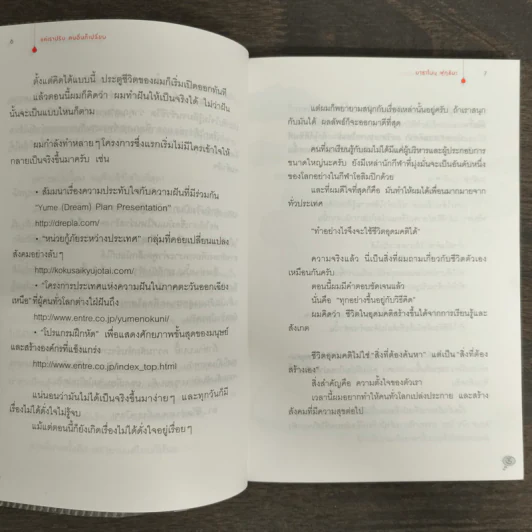 ตั้งแต่คิดได้แบบนี้ ประตูชีวิตของผมก็เริ่มเปิดออกทันที
แล้วตอนนี้ผมก็คิดว่า ผมทำฝันให้เป็นจริงได้ ไม่ว่าฝัน
นั้นจะเป็นแบบไหนก็ตาม
ผมกำลังทำหลายๆ โครงการซึ่งแรกเริ่มไม่มีใครเข้าใจให้
กลายเป็นจริงขึ้นมาครับ เช่น
• สัมมนาเรื่องความประทับใจกับความฝันที่มีร่วมกัน
"Yume (Dream) Plan Presentation"
http://drepla.com/
• "หน่วยกู้ภัยระหว่างประเทศ" กลุ่มที่คอยเปลี่ยนแปลง
สังคมอย่างลับๆ
http://kokusaikyujotai.com/
• "โครงการประเทศแห่งความฝันในภาคตะวันออกเฉียง
เหนือ" ที่ผู้คนทั่วโลกต่างใฝ่ฝันถึง
http://www.entre.co.jp/yumenokuni/
• "โปรแกรมฝึกหัด" เพื่อแสดงศักยภาพขั้นสุดของมนุษย์
และสร้างองค์กรที่แข็งแกร่ง
http://www.entre.co.jp/index_top.html
แน่นอนว่ามันไม่ได้เป็นจริงขึ้นมาง่ายๆ และทุกวันก็มี
เรื่องไม่ได้ดั่งใจไม่รู้จบ
แม้แต่ตอนนี้ก็ยังเกิดเรื่องไม่ได้ดั่งใจอยู่เรื่อยๆ
7
แต่ผมก็พยายามสนุกกับเรื่องเหล่านั้นอยู่ครับ ถ้าเราสนุก
กับมันได้ ผลลัพธ์ก็จะออกมาดีที่สุด
คนที่มาเรียนรู้กับผมไม่ได้มีแค่ผู้บริหารและผู้ประกอบการ
ขนาดใหญ่นะครับ ยังมีเหล่านักกีฬาที่มุ่งมั่นจะเป็นอันดับหนึ่ง
ของโลกอย่างในกีฬาโอลิมปิกด้วย
และที่ผมดีใจที่สุดก็คือ มันทำให้ผมได้เพื่อนมากมายจาก
ทั่วประเทศ
"ทำอย่างไรจึงจะใช้ชีวิตอุดมคติได้"
ความจริงแล้ว นี่เป็นสิ่งที่ผมถามเกี่ยวกับชีวิตตัวเอง
เหมือนกันครับ
ตอนนี้ผมมีคำตอบชัดเจนแล้ว
นั่นคือ "ทุกอย่างขึ้นอยู่กับวิธีคิด"
ผมคิดว่า ชีวิตในอุดมคติสร้างขึ้นได้จากการเรียนรู้และ
สังเกต
ชีวิตอุดมคติไม่ใช่ "สิ่งที่ต้องค้นหา" แต่เป็น "สิ่งที่ต้อง
สร้างเอง"
สิ่งสำคัญคือ ความตั้งใจของตัวเรา
เวลานี้ผมอยากทำให้คนทั่วโลกเปล่งประกาย และสร้าง
สังคมที่มีความสุขต่อไป